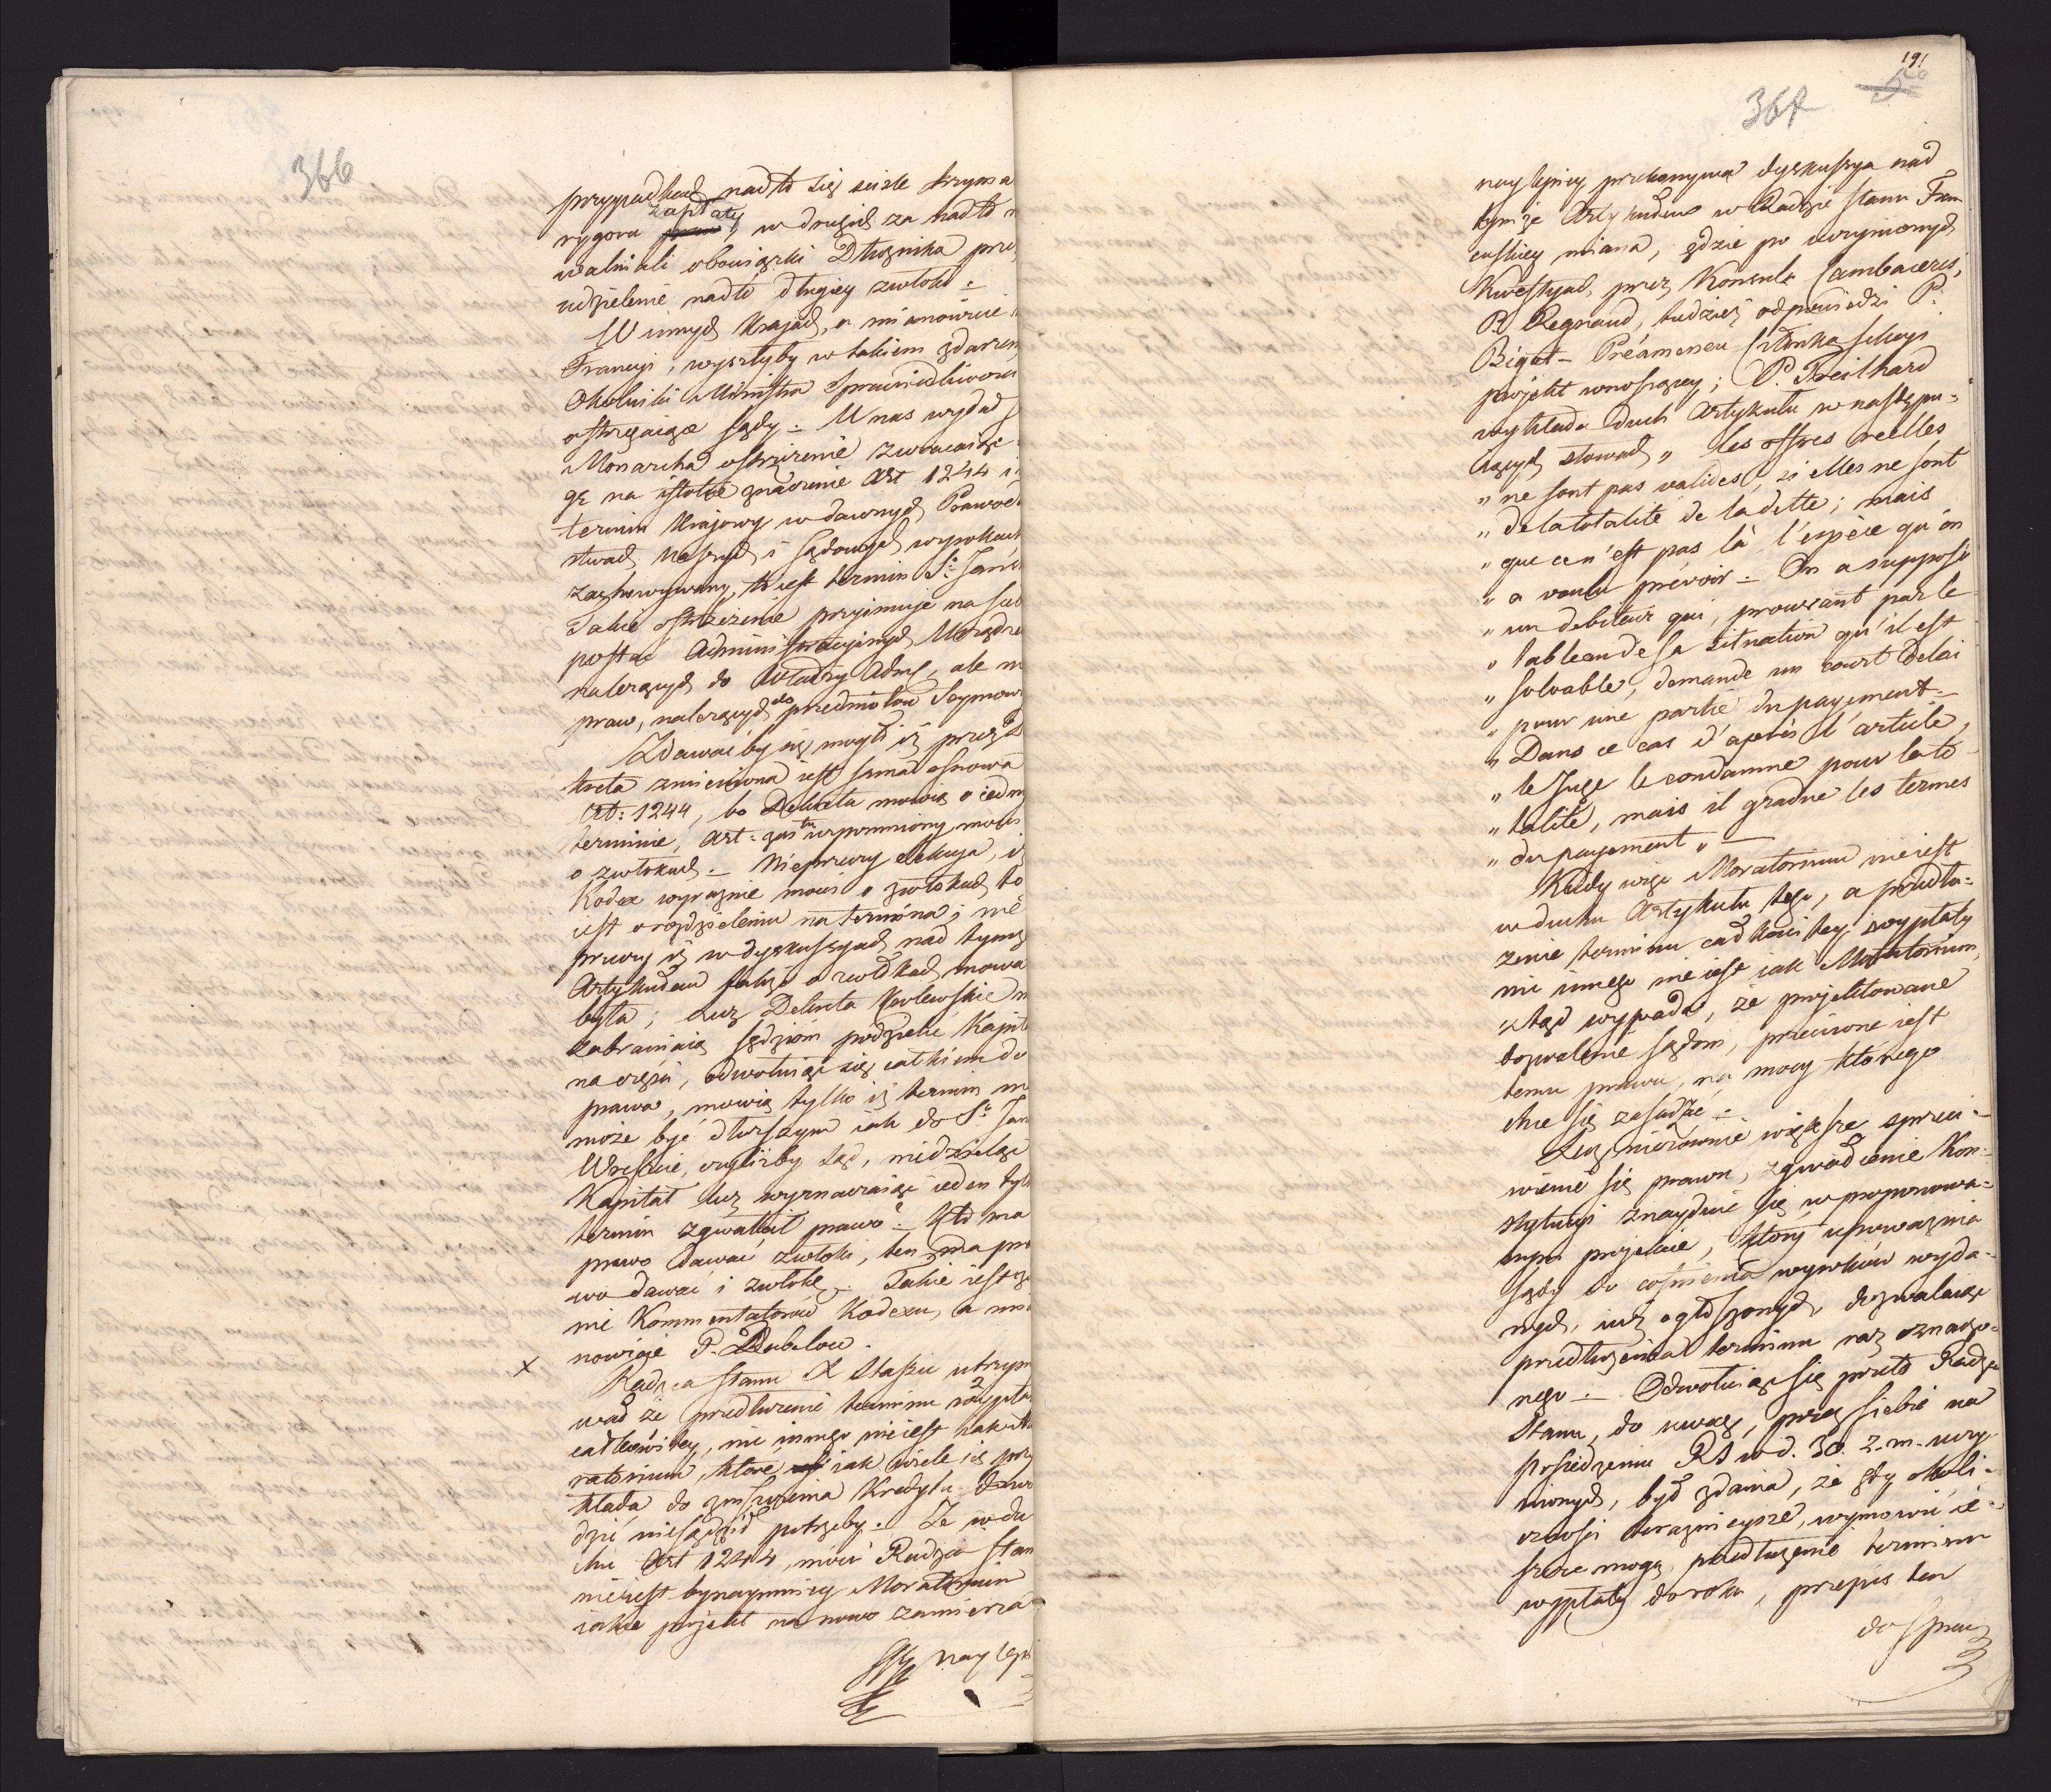 366
przypadkach nadto się sciśle trzyma
zapłaty
rygoru w drugich za nadto
walniali obowiązki Dłużnika prze
udzielenie nadto długiey zwłoki.
W innych Krajach, a mianowicie
Francyi, wyszłyby w takiem zdarzen
Okolniki Ministra Sprawiedliwości
ostrzegaiące sądy. U nas wydał
Monarcha ostrzeżenie zwracaiąc
gę na istotne znaczenie Art 1244 i
termin Krajowy w dawnych Prawod
stwach naszych i sądowych wyrokach
zachowywany, to iest termin St. Jański
Takie ostrzeżenie przyimuje na sie
postać Administracyinych Urządze
należących do Władzy Adm, ale n
praw, należących do przedmiotów Seymowy
Zdawać by się mogło iż przez De
kreta zmieniona iest sama osnowa
Art: 1244, bo Dekreta mówią o iedny
terminie, Art: zaś tu wspomniony mówi
o zwłokach. Niepierwszy
Kodex wyraźnie mówi o zwłokach to
iest o rozdzieleniu na termina; nie
przeczy iż w dyskussyach nad tymż
Artykułem także o zwłokach mowa
była; lecz Dekreta Królewskie n
zabraniaią sędziom podzielić Kapita
na części, odwołuiąc się całkiem do
prawa, mówią tylko iż termin n
może być dłuższym iak do St. Jan
Wreszcie, czyliżby Sąd, niedzieląc
Kapitał lecz wyznaczaiąc ieden tyl
termin zgwałcił prawo? Kto ma
prawo dawać zwłoki, ten ma pra
wo dawać i zwłokę. Takie iest zda
nie Kommentatorów Kodexu, a mia
nowicie P. Dabelow.
x Radca Stanu X Staszic utrzym
wał że przedłużenie terminu wypła
całkowitey, nic innego nieiest iak Mo
ratorium, które iak wiele się przy
kłada do zniszczenia Kredytu dowo
dzić niesądził potrzeby. Że w du
chu Art 1244, mówi Radca Stan
nieiest bynaymniey Moratorium
iakie projekt na nowo zamierza
naylepi
191
367
naylepiey przekonywa dyskussya nad
tymże Artykułem w Radzie Stanu Fran
cuskiey miana, gdzie po uczynionych
Kwestyach przez Konsula Cambaceres,
P. Regnaud, tudzież odpowiedzi P.
Bigot-Préameneu Członka Sekcyi
projekt wnoszącey; P. Treilhard
wykłada duch Artykułu w następu-
iących słowach „ les offres réélles
„ ne sont pas valides, si elles ne sont
„ de la totalité de la dette; mais
„ que ce n'est pas là l'espèce qu'on
„ a voulu prévoir. On a supposé
„ un debiteur qui, prouvant par le
„ tableau de sa situation qu'il est
„ solvable, demande un court delai
„ pour une partie du payement.
„ Dans ce cas d'après l'article,
„ le Juge le condamne pour la to
„ talité, mais il gradue les termes
„ du payement „ —
Kiedy więc Moratorium nieiest
w duchu Artykułu tego, a przedłu-
żenie terminu całkowitey wypłaty
nic innego nie iest iak Moratorium,
ztąd wypada, że projektowane
dozwolenie sądom, przeciwne iest
temu prawu, na mocy którego
chce się zasadzać.
Lecz nierównie większe sprzeci-
wienie się prawu, zgwałcenie Kon-
stytucyi znayduie się w proponowa-
nym projekcie, który upoważnia
sądy do cofnienia wyroków wyda-
nych, iuż ogłoszonych, dozwalaiąc
przedłużenia terminu raz oznaczo-
nego. Odwołuiąc się przeto Radca
Stanu, do uwag, przez siebie na
posiedzeniu RS w d. 30. z. m. uczy
nionych, był zdania, że gdy okoli-
czności teraznieysze, wymówić ie-
szcze mogą przedłużenie terminu
wypłaty do roku, przepis ten
do spraw